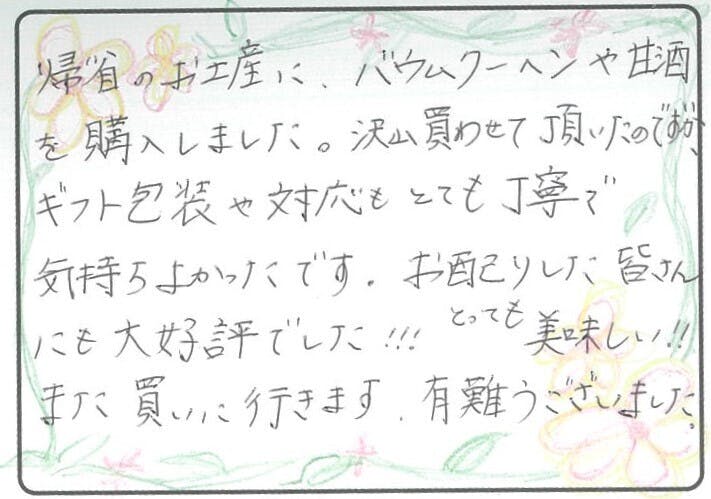 帰省のお土産に、バウムクーヘンや甘酒
を購入しました。沢山買わせて頂いたのですが、
ギフト包装や対応もとても丁寧で
気持ちよかったです。お配りした皆さん
にも大好評でした!!! とっても美味しい!!
また買いに行きます。有難うございました。